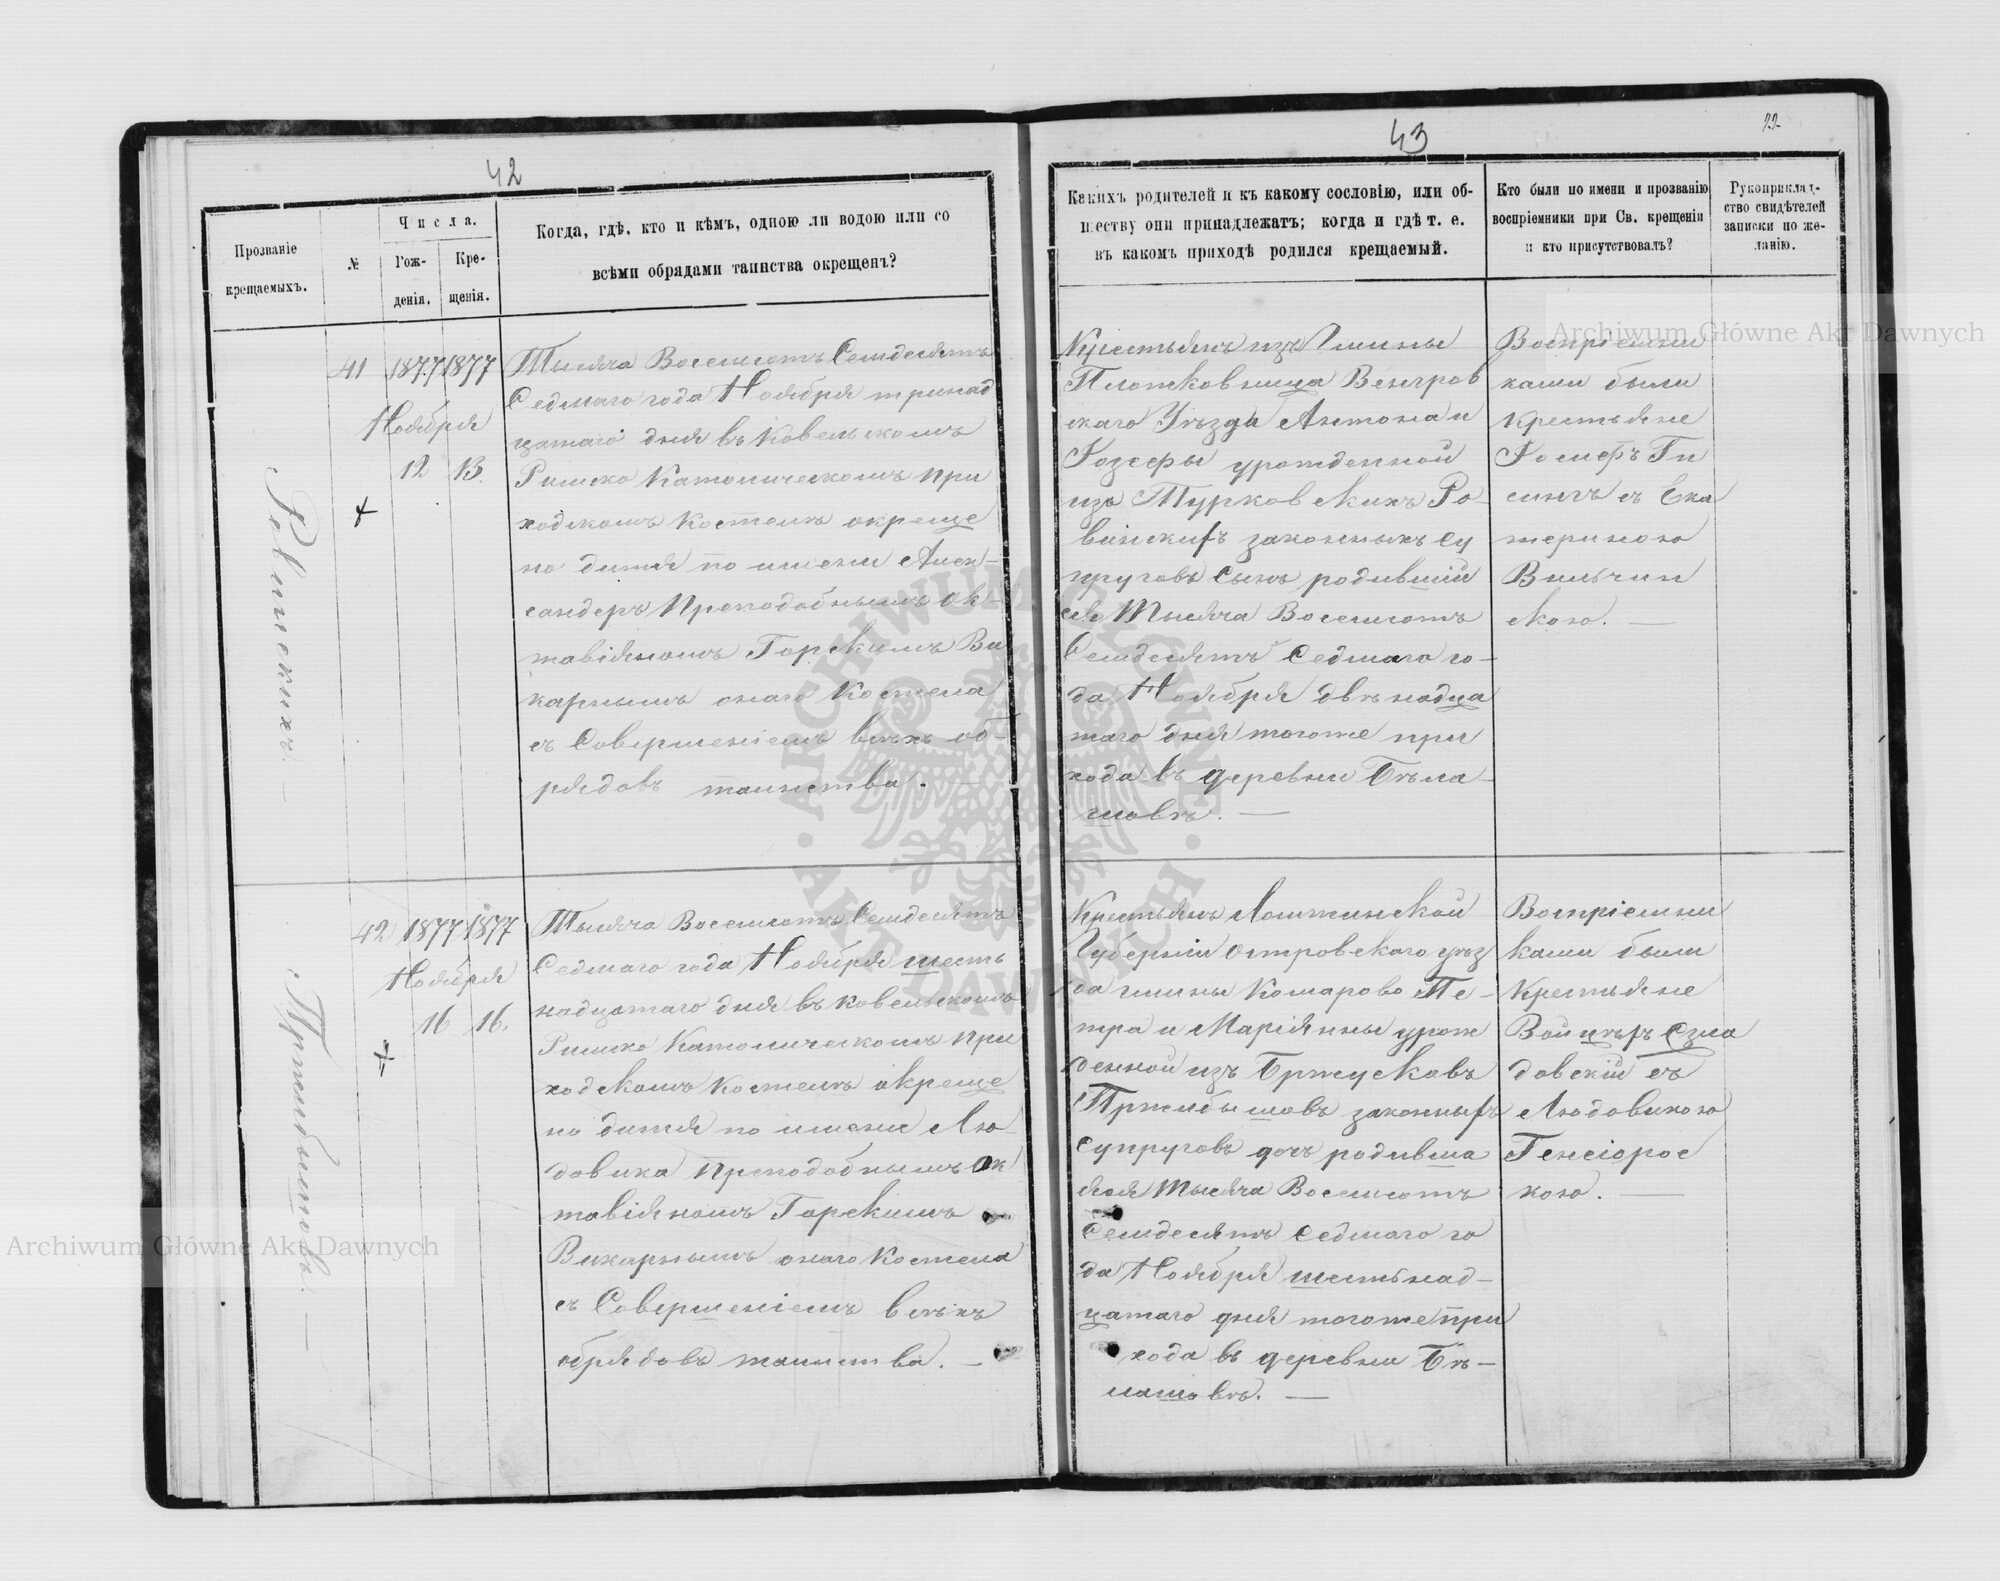 42
Прозваніе
крещаемыхъ.
№
Числа.
Рож-
денія.
Кре-
щенія.
Когда, гдѣ, кто и кѣмъ, одною ли водою или со
всѣми обрядами таинства окрещенъ?
41 1877 1877
Ноября
12 13.
Тысяча Восемсотъ Семдесятъ
Седмаго года Ноября тринад
цатаго дня въ Ковельскомъ
Римско Католическомъ при
ходскомъ Костелѣ окреще
но дитя по имени Алек-
сандеръ Преподобнымъ Ок-
тавіяномъ Горскимъ Ви
карнымъ онаго Костела
съ Совершеніемъ всѣхъ об-
рядовъ таинства. —
42 1877 1877
Ноября
16 16.
Пржибышовъ. —
Тысяча Восемсотъ Семдесятъ
Седмаго года Ноября шесть
надцатаго дня въ Ковельскомъ
Римско Католическомъ при
ходскомъ Костелѣ окреще
но дитя по имени Лю-
довика Преподобнымъ Ок
тавіяномъ Горскимъ
Викарнымъ онаго Костела
съ Совершеніемъ всѣхъ
обрядовъ таинства. —
43
22
Какихъ родителей и къ какому сословію, или об-
ществу они принадлежатъ; когда и гдѣ т. е.
въ какомъ приходѣ родился крещаемый.
Кто были по имени и прозванію
воспріемники при Св. крещеніи
и кто присутствовалъ?
Рукоприклад-
ство свидѣтелей
записки по же-
ланію.
Крестьянъ изъ Гмины
Венгров
скаго Уѣзда Антона и
Іозефы урожденной
изъ Турковскихъ Ро-
винскихъ законныхъ Су
пруговъ Сынъ родивший
ся Тысяча Восемсотъ
Семдесятъ Седмаго го-
да Ноября двѣнадца
таго дня тогоже при
хода въ деревни Бѣла-
шовѣ. —
Воспріемни
ками были
крестьяне
Іосифъ Ги
съ Ека
териною
Вильчин
скою. —
Крестьянъ Ломжинской
Губерніи Островскаго уѣз
да гмины Комарово Пе-
тра и Маріянны урож
денной изъ Бржусковъ
Пржибышовъ законныхъ
Супруговъ дочъ родивша
яся Тысяча Восемсотъ
Семдесятъ Седмаго го
да Ноября шестьнад-
цатаго дня тогоже при
хода въ деревни Бѣ-
лашовѣ. —
Воспріемни
ками были
Крестьяне
Войцѣхъ Сза
довскій съ
Людовикою
Генсіорос
кою. —
Archiwum Główne Akt Dawnych
Archiwum Główne Akt Dawnych
ARCHIWUM GŁÓWNE AKT DAWNYCH